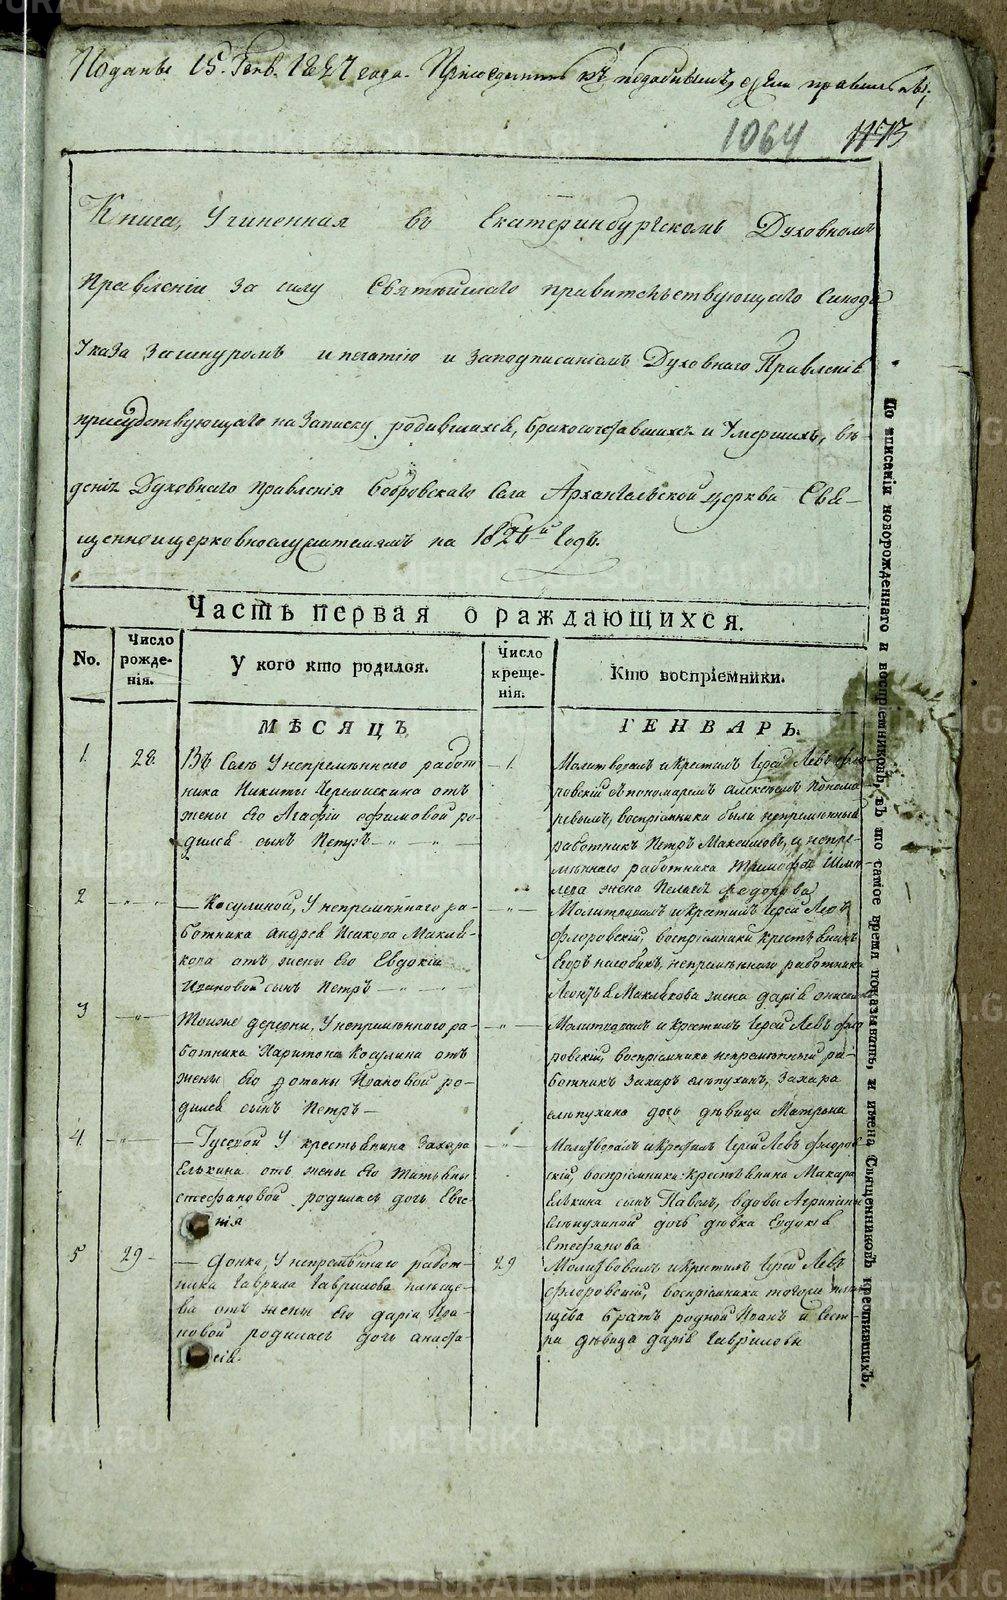 Поданы 15. Генв. 1827 года.
1064 1173
Книга, Учиненная въ Екатеринбургскомъ Духовномъ
Правленіи за силу Святѣйшаго правительствующаго Синода
Указа за шнуромъ и печатію и заподписаніемъ Духовнаго Правленія
присудствующаго на записку родившихся, бракосочетавшихся и Умершихъ, вѣ-
денія Духовнаго Правленія Бобровскаго Села Архангельской церкви Свя-
щенноицерковнослужителямъ на 1826й Годъ.
Часть первая о раждающихся.
No.
Число рожде-нія.
У кого кто родился.
Число креще-нія.
Кто воспріемники.
МѢСЯЦЪ
ГЕНВАРЬ.
1. 28. Въ Селѣ У непремѣннаго работ-
ника Никиты Черемискина отъ
жены его Агафіи Ефимовой ро-
дился сынъ Петръ
1. Молитвовалъ и крестилъ Іерей Левъ Фло-
ровскій съ пономаремъ Алексѣемъ Понома-
ревымъ, воспріемники были непремѣнный
работникъ Петръ Максимовъ, и непре-
мѣннаго работника Тимофея
жена Пелагея Федорова
2 — Косулиной, У непремѣннаго ра-
ботника Андрея Исакова Макля-
кова отъ жены его Евдокіи
Ивановой сынъ Петръ
Молитвовалъ и крестилъ Іерей Левъ
Флоровскій, воспріемники крестьянинъ
Егоръ непремѣннаго работника
Леонтья Маклякова жена Дарія
3 Тоиже деревни, У непремѣннаго ра-
ботника Харитона Косулина отъ
жены его Фотины Ивановой ро-
дился сынъ Петръ —
Молитвовалъ и крестилъ Іерей Левъ Фло
ровскій, воспріемники непремѣнный ра-
ботникъ Захаръ Слѣпухинъ, Захара
Слѣпухина дочь дѣвица Матрона
4. — Гусевой У крестьянина Захара
Елькина отъ жены его Татьяны
Стефановой родилась дочь Евге-
нія
Молитвовалъ и крестилъ Іерей Левъ Флоров
скій, воспріемники крестьянина Макара
Елькина сынъ Павелъ, вдовы Агрипины
Слѣпухиной дочь дѣвка Евдокія
Стефанова
5 29 — Фомки, У непремѣннаго работ-
ника Гаврила Гаврилова
отъ жены его Даріи Ива-
новой родилась дочь Анаста-
сія.
29 Молитвовалъ и крестилъ Іерей Левъ
Флоровскій, воспріемники тогожъ
братъ родной Иванъ и сест-
ра дѣвица Дарія Гавриловы
По вписаніи новорожденнаго и воспріемниковъ, въ то самое время показывать, и имена Священниковъ крестившихъ,
METRIKI.GASO-URAL.RU